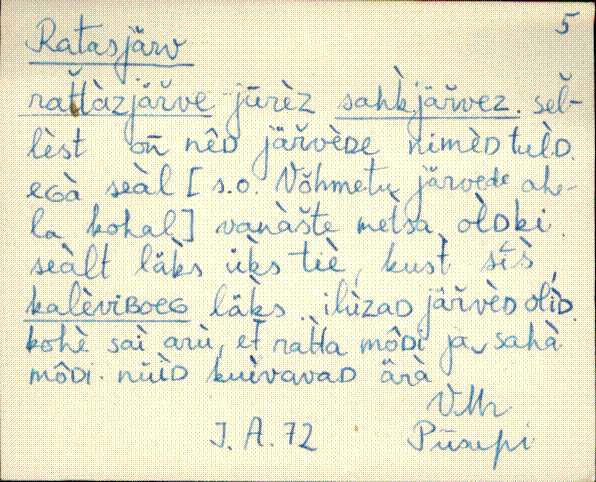 5
Ratasjärv
rat̆t̀àzjär̆ve jūrèz sahk̀jär̆vez. sel̆-
lèst on̄ nêᴅ jär̆vèᴅe nimèᴅ tulᴅ.
eɢà seàl [s.o. Võhmetu järvede ahe-
la kohal] vanàs̆te mètsa òlᴅki.
seàlt läk̀s ük̀s tiè, kust̀ sīs̀
kalèviʙoeɢ läk̀s. ilùzaᴅ jär̆vèᴅ olìᴅ.
kohè saì arù, et̀ rat̀ta môᴅi ja sahà
môᴅi. nǖìᴅ kuìvavaᴅ ärà
VMr
J. A. 72 Piisupi